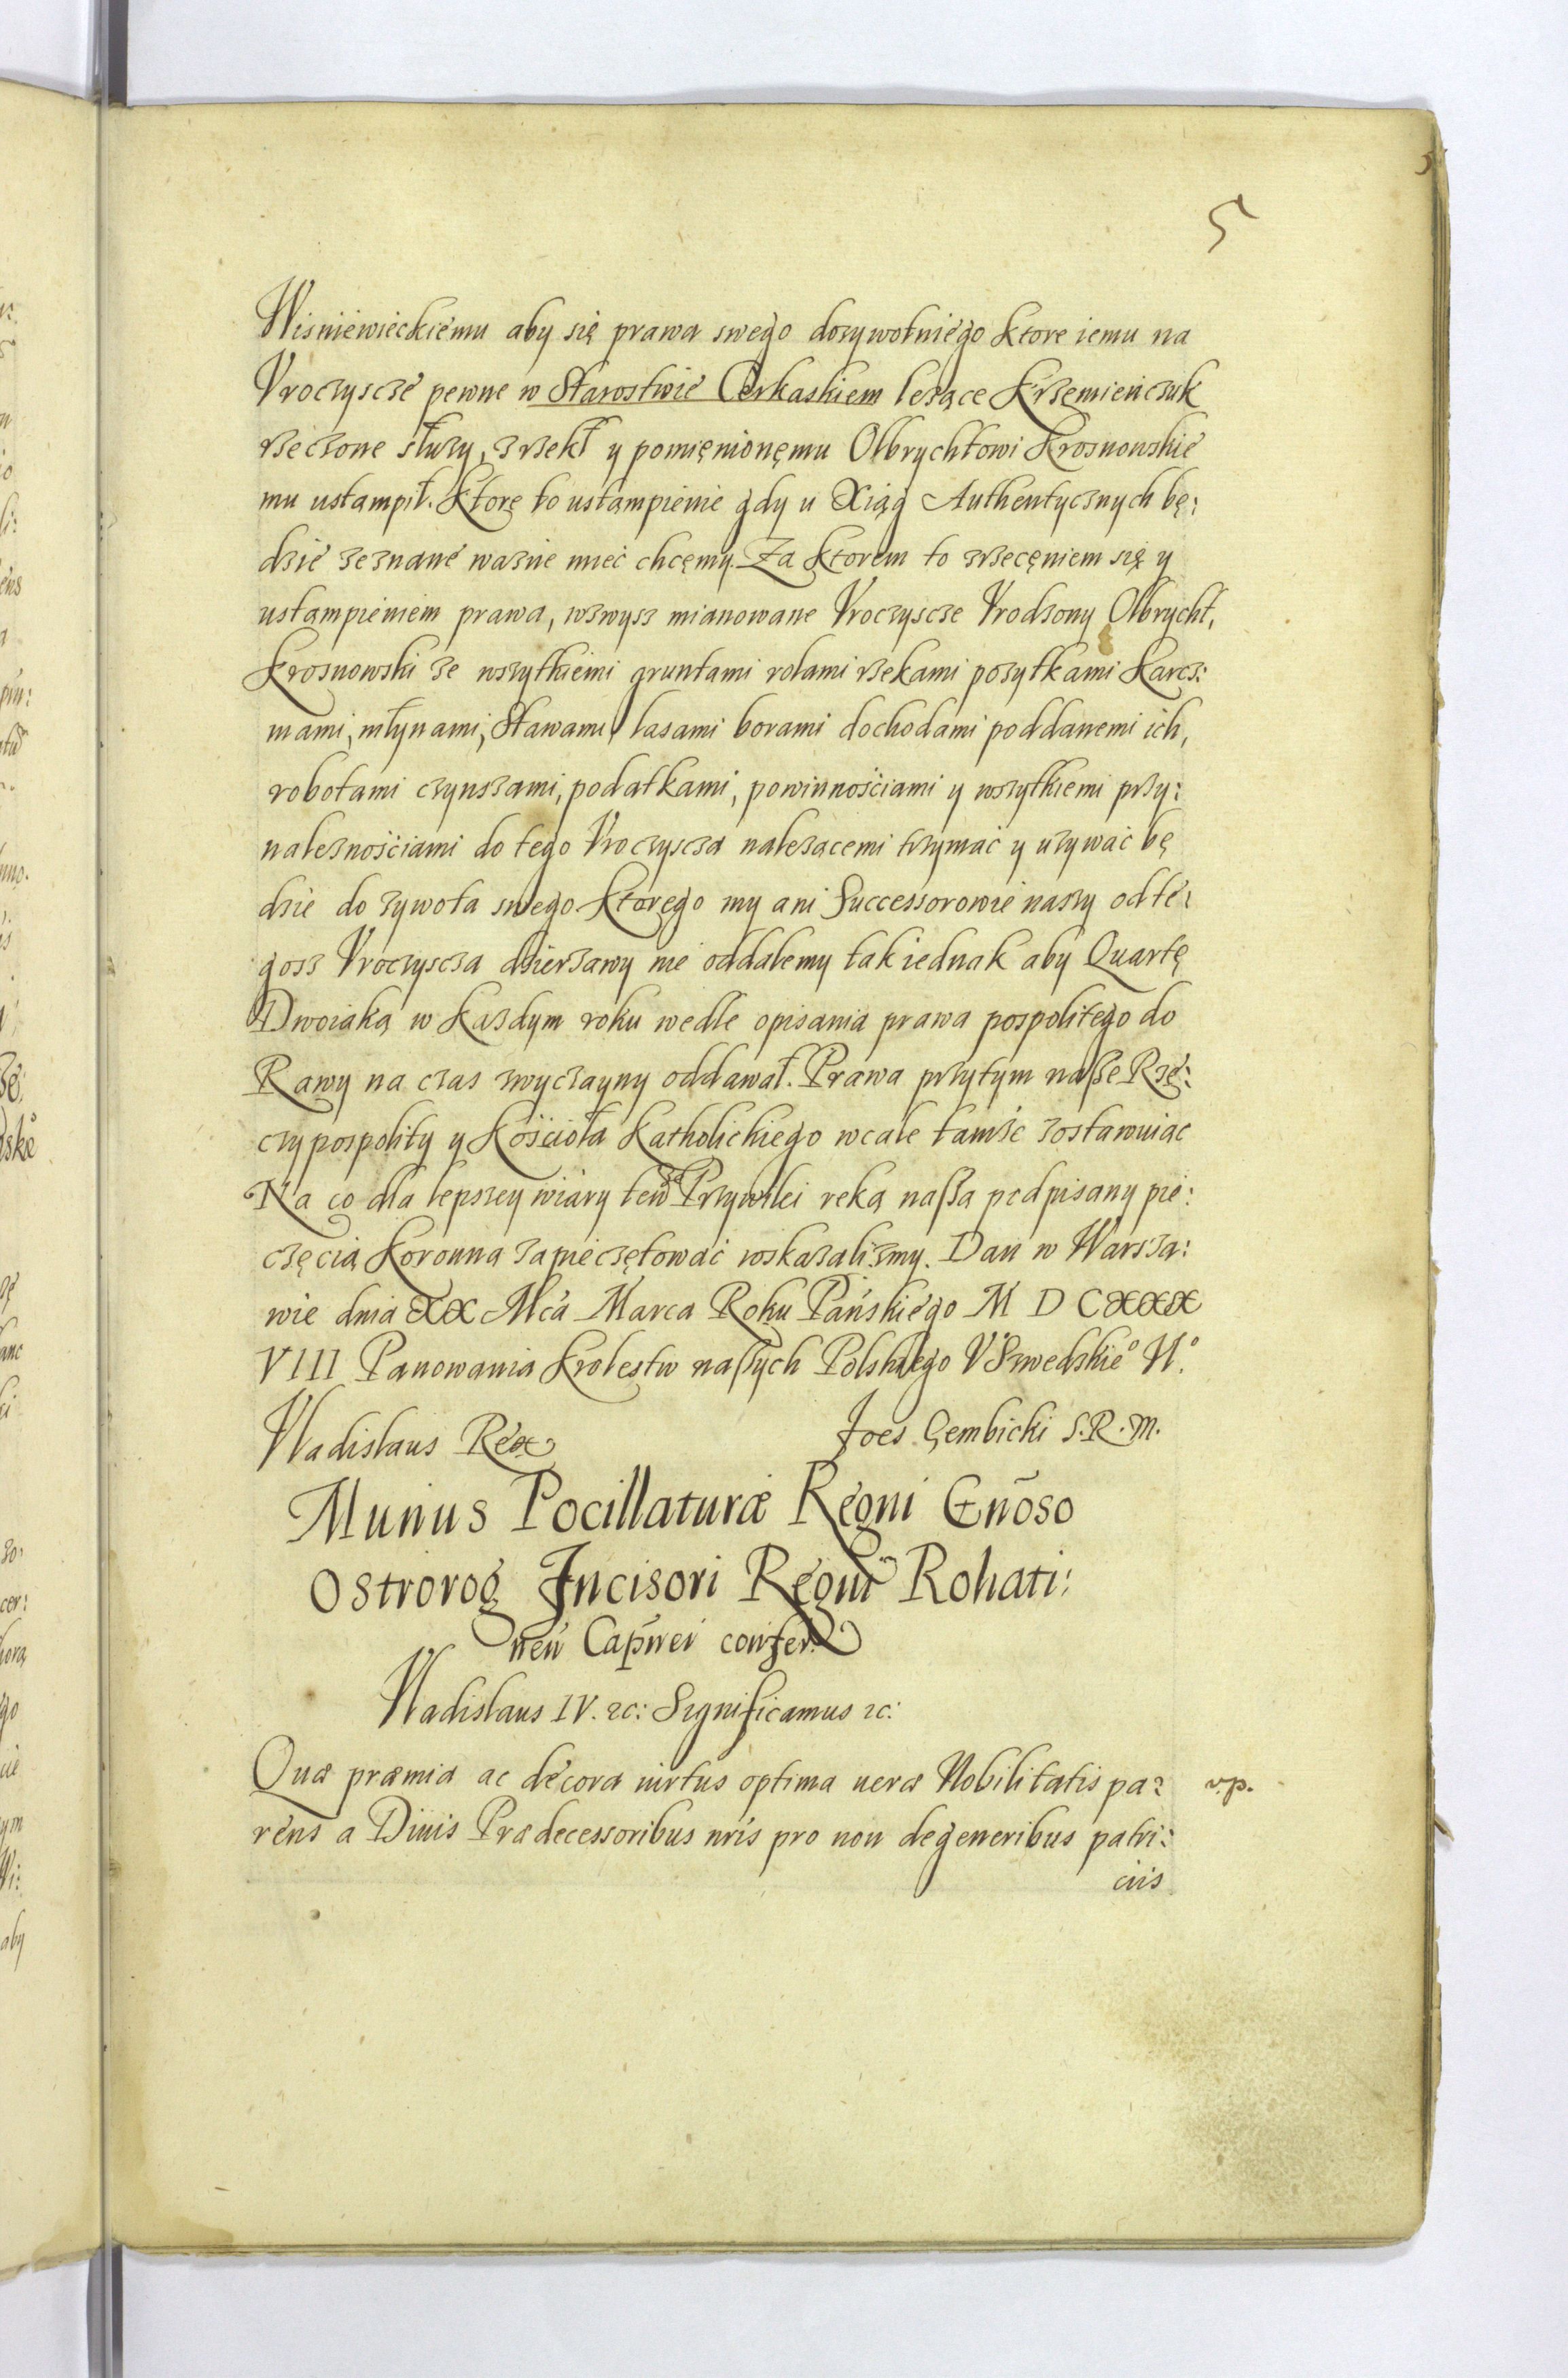 5
Wisniewieckiemu aby się prawa swego dozywotniego ktore iemu na
Vroczyscze pewne w Starostwie Cerkaskiem lezące Krzemieńczuk
rzeczone służy, zrzekł y pomięnionęmu Olbrychtowi Krosnowskie
mu ustampił. Ktorę to ustąmpienie gdy u Xiąg Authentycznych bę:
dzie zeznane wazne mieć chcęmy. Za ktorem to zrzecęniem się y
ustąmpieniem prawa, wzwysz mianowane Vroczyscze Vrodzony Olbrycht,
Krosnowski ze wszytkiemi gruntami rolami rzekami pozytkami Karcz:
mami, młynami, Stawami lasami borami dochodami poddanemi ich,
robotami czynszami, podatkami, powinnościami y wszytkiemi przy:
naleznościami do tego Vroczyscza nalezącemi trzymać y uzywać bę
dzie do zywota swego. Ktoręgo my ani Successorowie naszy od te:
gosz Vroczyscza dzierzawy nie oddalemy tak iednak aby Quartę
Dwoiaką w kazdym roku wedle opisania prawa pospolitego do
Rawy na czas zwyczayny oddawał. Prawa przytym nasze Rzę:
czypospolity y Kościoła Katholickiego wcale tamże zostawuiąc
Na co dla lepszey wiary ten Przywilei reką naszą podpisany pie:
częcią Koronną zapieczętować wskazalizmy. Dan w Warsza:
wie dnia XX Mca Marca Roku Pańskiego M D C XXX
VIII Panowania Krolestw naszych Polskiego V Szwedskieº Nº
Vladislaus Rex Joes Gembicki S.R.M.
Munus Pocillaturæ Regni Gnõso
Ostrorog Incisori Regni Rohati:
nen̄ Capn̄ei confer:
Vladislaus IV. ꝛc: Significamus ꝛc:
Quæ præmia ac decora uirtus optima ueræ Nobilitatis pa: v.p.
rens a Diuis Prædecessoribus nrís pro non degeneribus patri:
ciis